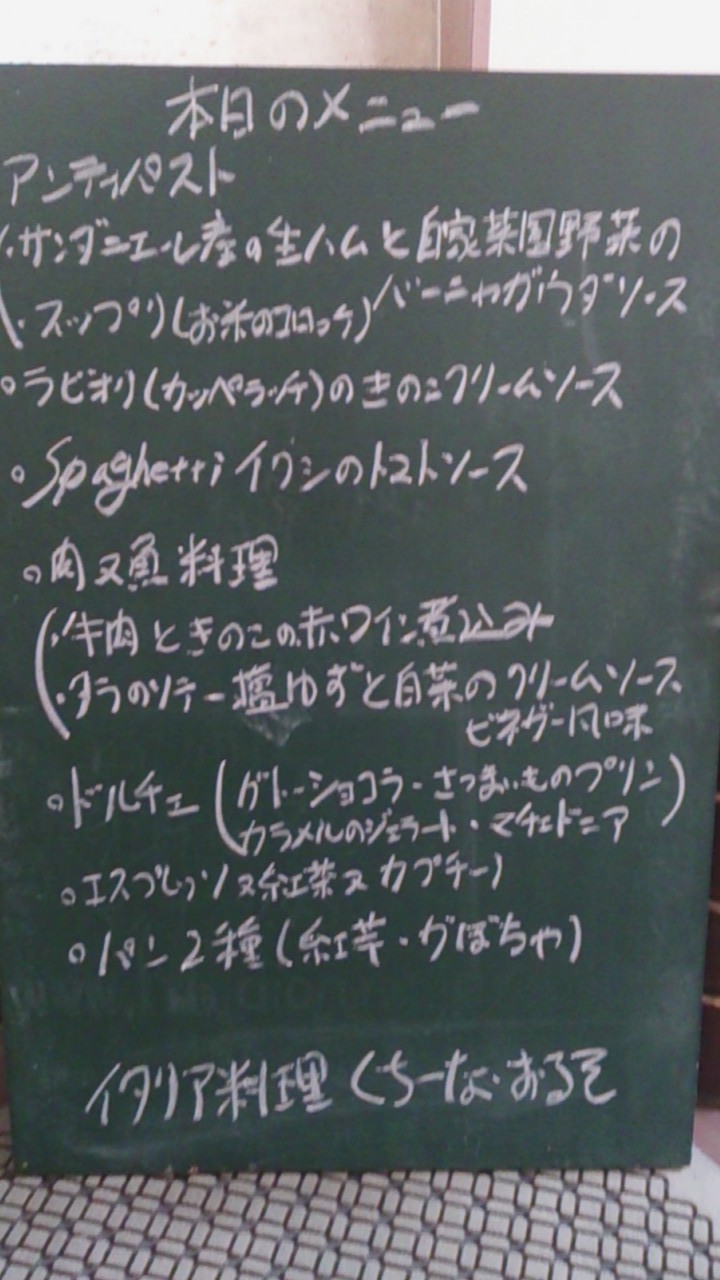 本日のメニュー
アンティパスト
・サンダニエーレ産の生ハムと自家菜園野菜の
バーニャガウダソース
・スップリ(お米のコロッケ)
○ラビオリ(カッペラッチ)のきのこクリームソース
○Spaghetti イワシのトマトソース
○肉又魚料理
・牛肉ときのこの赤ワイン煮込み
・タラのソテー塩ゆずと白菜のクリームソース
ビネガー風味
○ドルチェ(ガトーショコラ・さつまいものプリン
カラメルのジェラート・マチェドニア)
○エスプレッソ又紅茶又カプチーノ
○パン2種(紅芋・かぼちゃ)
イタリア料理 くちーな・おるそ